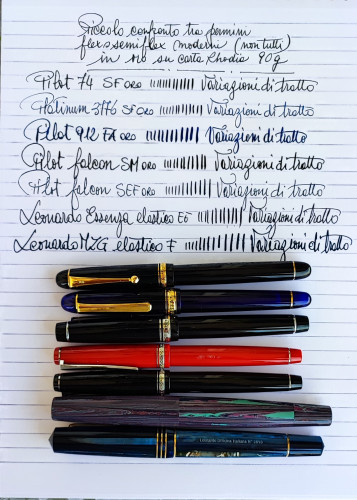 Piccolo confronto tra pennini
flex&semiflex moderni (non tutti)
in oro su carta Rhodia 90g
Pilot 74 SF oro Variazioni di tratto
Platinum 3776 SF oro Variazioni di tratto
Pilot 912 FA oro Variazioni di tratto
Pilot falcon SM oro Variazioni di tratto
Pilot falcon SEF oro Variazioni di tratto
Leonardo Essenza elastico EF Variazioni di tratto
Leonardo MZG elastico F Variazioni di tratto